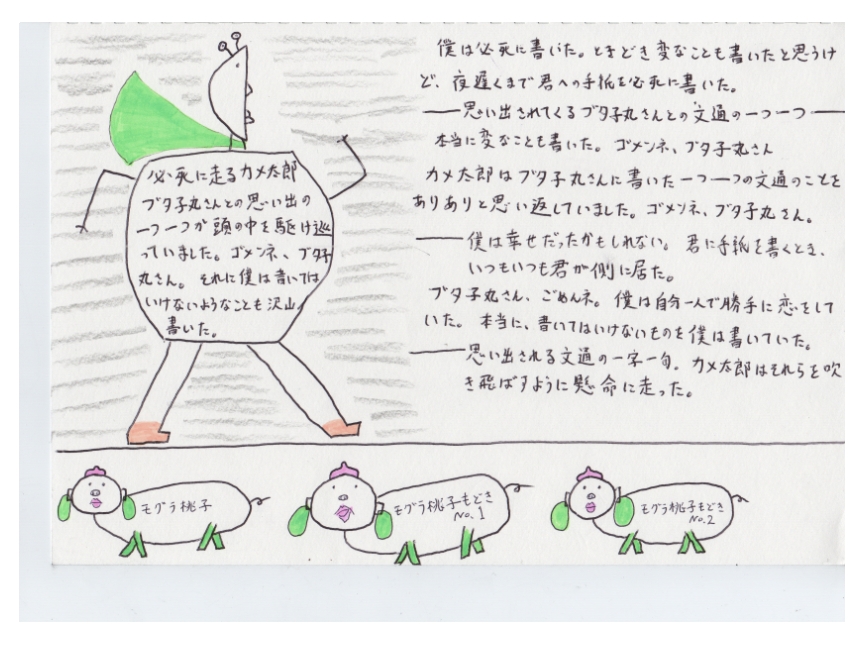 必死に走るカメ太郎
ブタ子丸さんとの思い出の
一つ一つが頭の中を駆け巡
っていました。ゴメンネ、ブタ子
丸さん。それに僕は書いては
いけないようなことも沢山
書いた。
僕は必死に書いた。ときどき変なことも書いたと思うけ
ど、夜遅くまで君への手紙を必死に書いた。
――思い出されてくるブタ子丸さんとの文通の一つ一つ――
本当に変なことも書いた。ゴメンネ、ブタ子丸さん
カメ太郎はブタ子丸さんに書いた一つ一つの文通のことを
ありありと思い返していました。ゴメンネ、ブタ子丸さん。
――僕は幸せだったかもしれない。君に手紙を書くとき、
いつもいつも君が側に居た。
ブタ子丸さん、ごめんネ。僕は自分一人で勝手に恋をして
いた。本当に、書いてはいけないものを僕は書いていた。
――思い出される文通の一字一句。カメ太郎はそれらを吹
き飛ばすように懸命に走った。
モグラ桃子
モグラ桃子もどき
No.1
モグラ桃子もどき
No.2